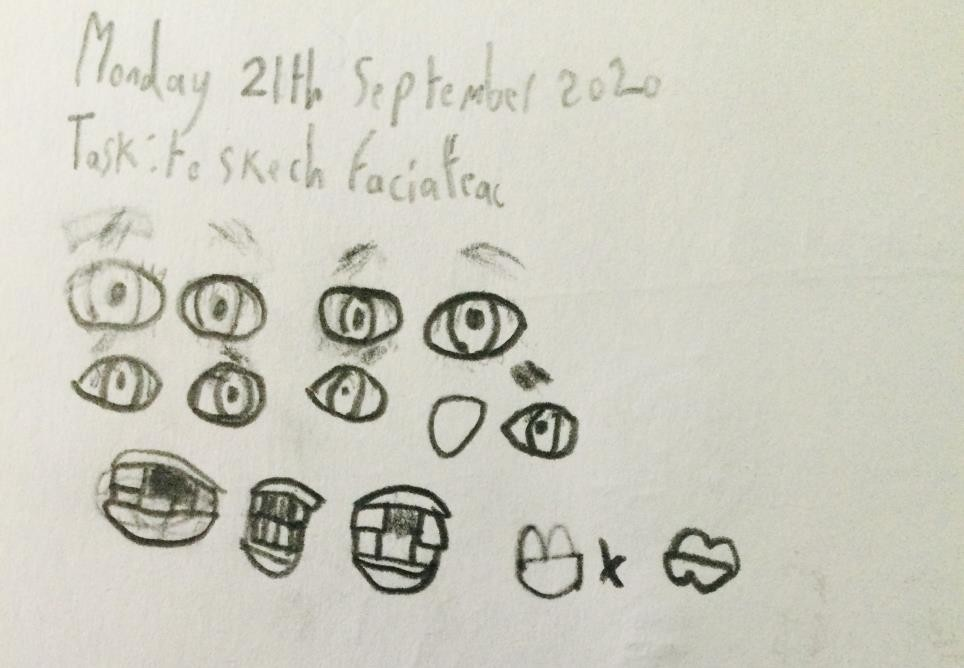 Monday 21th September 2020
Task: to skech faciafeac
x